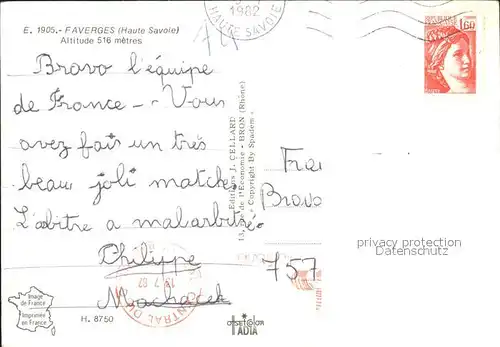 E. 1905.- FAVERGES (Haute Savoie)
Altitude 516 mètres
1982
HAUTE SAVOIE
74
1,60
Bravo l'équipe
de France - Vous
avez fait un très
beau joli matche,
L'abitre a mal arbitré.
Philippe
Machacek
Editions J. CELLARD
13, Rue de l'Économie - BRON (Rhône)
Copyright By Spadem
Fra
Bravo
757
privacy protection
Datenschutz
CENTRAL
Image
de France
Imprimée
en France
H. 8750
OFFSET COLOR
IADIA